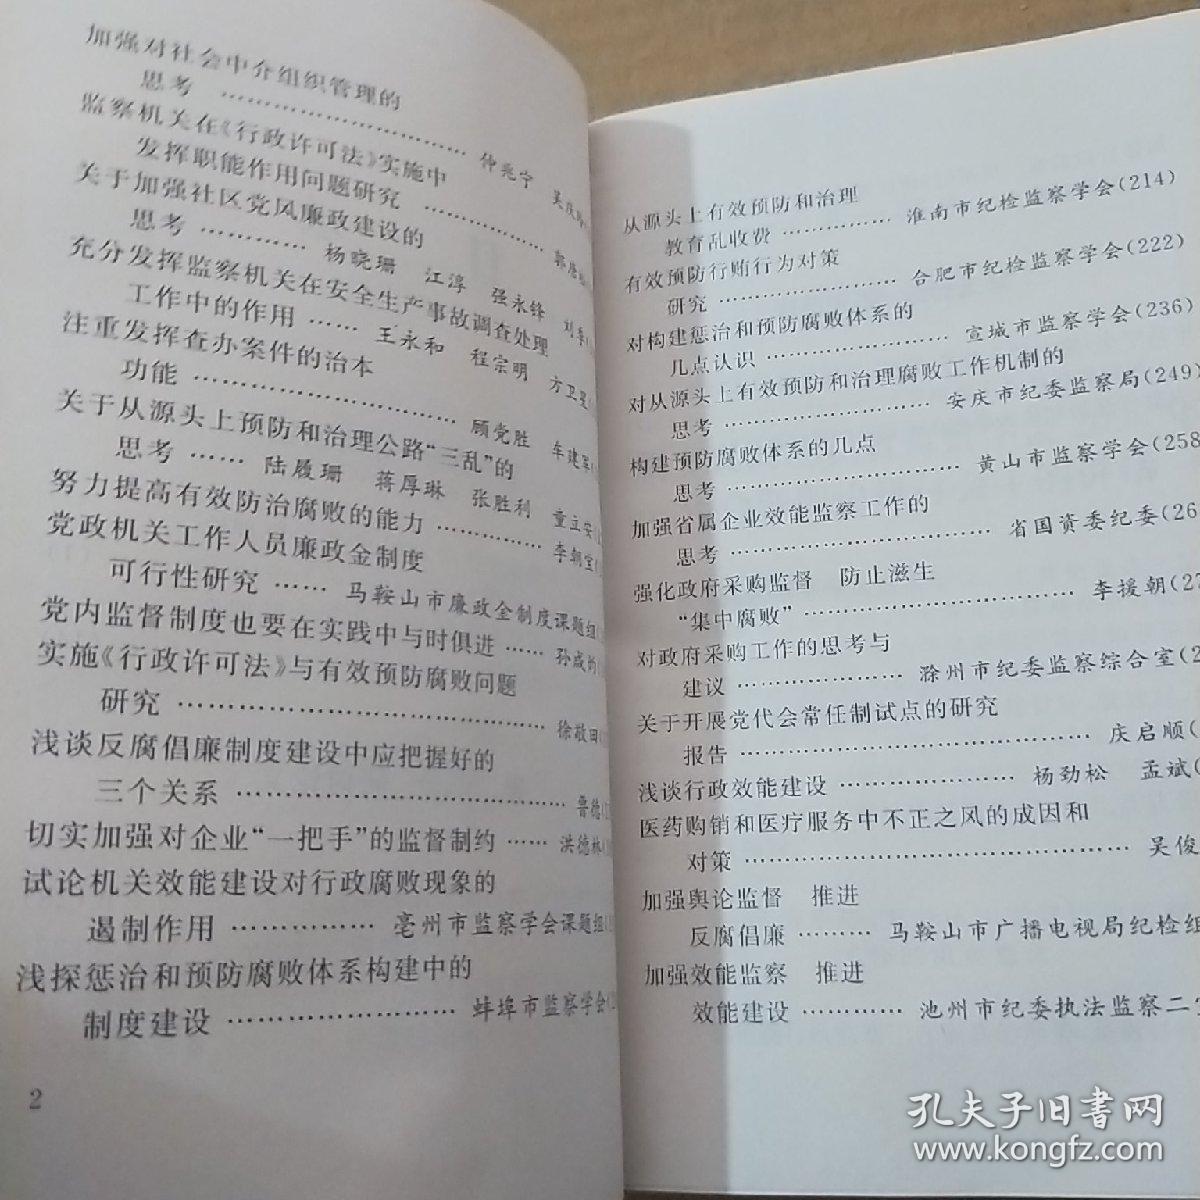 加强对社会中介组织管理的
思考 …………………… 仲兆宁
监察机关在《行政许可法》实施中
发挥职能作用问题研究 …………
关于加强社区党风廉政建设的
思考 ………… 杨晓珊 江淳 强永锋
充分发挥监察机关在安全生产事故调查处理
工作中的作用 …… 王永和 程宗明 方卫星
注重发挥查办案件的治本
功能 …………………… 顾党胜 车建军
关于从源头上预防和治理公路“三乱”的
思考 …… 陆履珊 蒋厚琳 张胜利 童立安
努力提高有效防治腐败的能力 ………… 李朝宝
党政机关工作人员廉政金制度
可行性研究 …… 马鞍山市廉政金制度课题组
党内监督制度也要在实践中与时俱进 ……
实施《行政许可法》与有效预防腐败问题
研究 ……………………………… 徐敬田
浅谈反腐倡廉制度建设中应把握好的
三个关系 ……………………………… 鲁德
切实加强对企业“一把手”的监督制约 …… 洪德林
试论机关效能建设对行政腐败现象的
遏制作用 …………… 亳州市监察学会课题组
浅探惩治和预防腐败体系构建中的
制度建设 …………………… 蚌埠市监察学会
2
从源头上有效预防和治理
教育乱收费 ………… 淮南市纪检监察学会(214)
有效预防行贿行为对策
研究 ……………… 合肥市纪检监察学会(222)
对构建惩治和预防腐败体系的
几点认识 ……………… 宣城市监察学会(236)
对从源头上有效预防和治理腐败工作机制的
思考 …………………… 安庆市纪委监察局(249)
构建预防腐败体系的几点
思考 …………………… 黄山市监察学会(258
加强省属企业效能监察工作的
思考 ……………………… 省国资委纪委(26
强化政府采购监督 防止滋生
“集中腐败” ……………………… 李援朝(27
对政府采购工作的思考与
建议 ……………… 滁州市纪委监察综合室(2
关于开展党代会常任制试点的研究
报告 ……………………………… 庆启顺(
浅谈行政效能建设 ……………… 杨劲松 孟斌(
医药购销和医疗服务中不正之风的成因和
对策 …………………………………… 吴俊
加强舆论监督 推进
反腐倡廉 ……… 马鞍山市广播电视局纪检组
加强效能监察 推进
效能建设 ………… 池州市纪委执法监察二室
孔夫子旧书网
www.kongfz.com